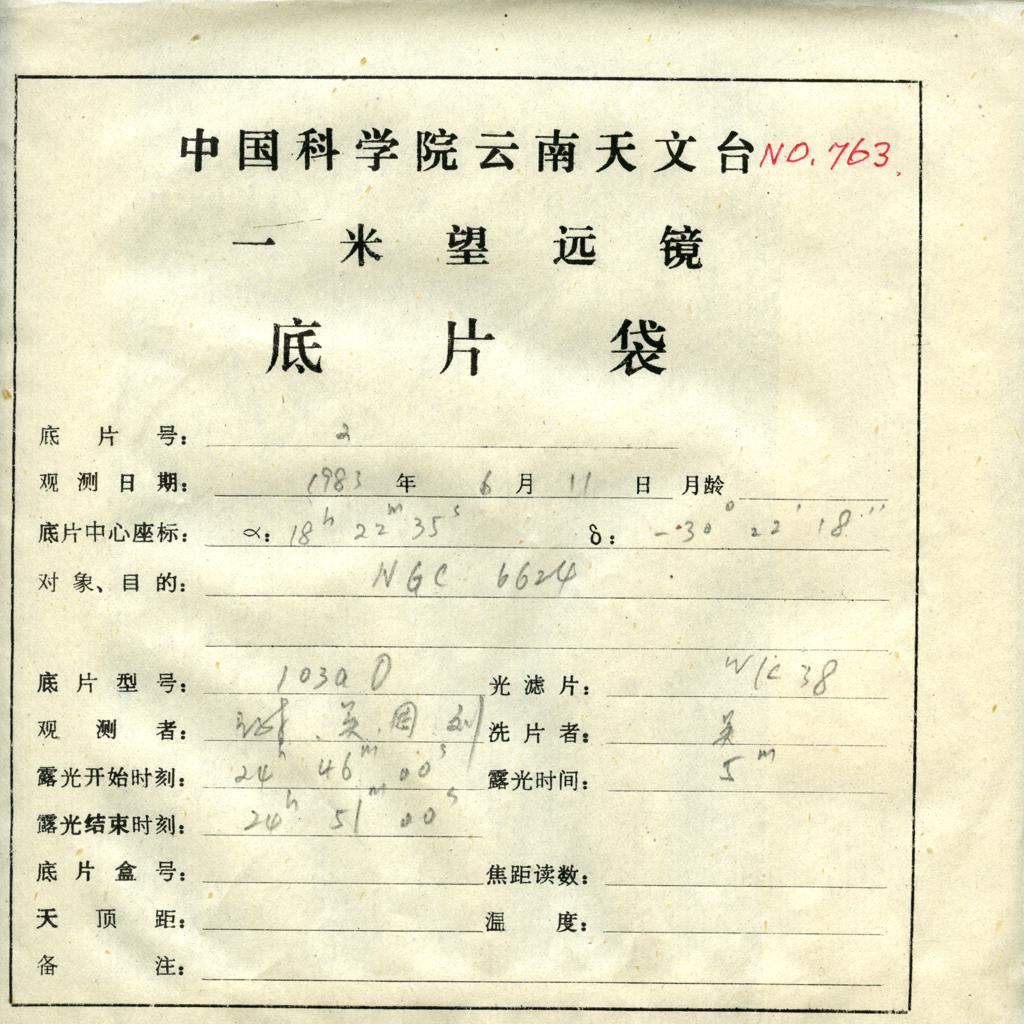 中国科学院云南天文台 NO.763
一米望远镜
底片袋
底片号: 2
观测日期: 1983年 6月 11日 月龄
底片中心座标: α: 18h 22m 35s δ: -30° 22' 18''
对象、目的: NGC 6624
底片型号: 103a O 光滤片:  38
观测者: 吴 周 刘 洗片者: 吴
露光开始时刻: 24h 46m 00s 露光时间: 5m
露光结束时刻: 24h 51m 00s
底片盒号: 焦距读数:
天顶距: 温度:
备注: